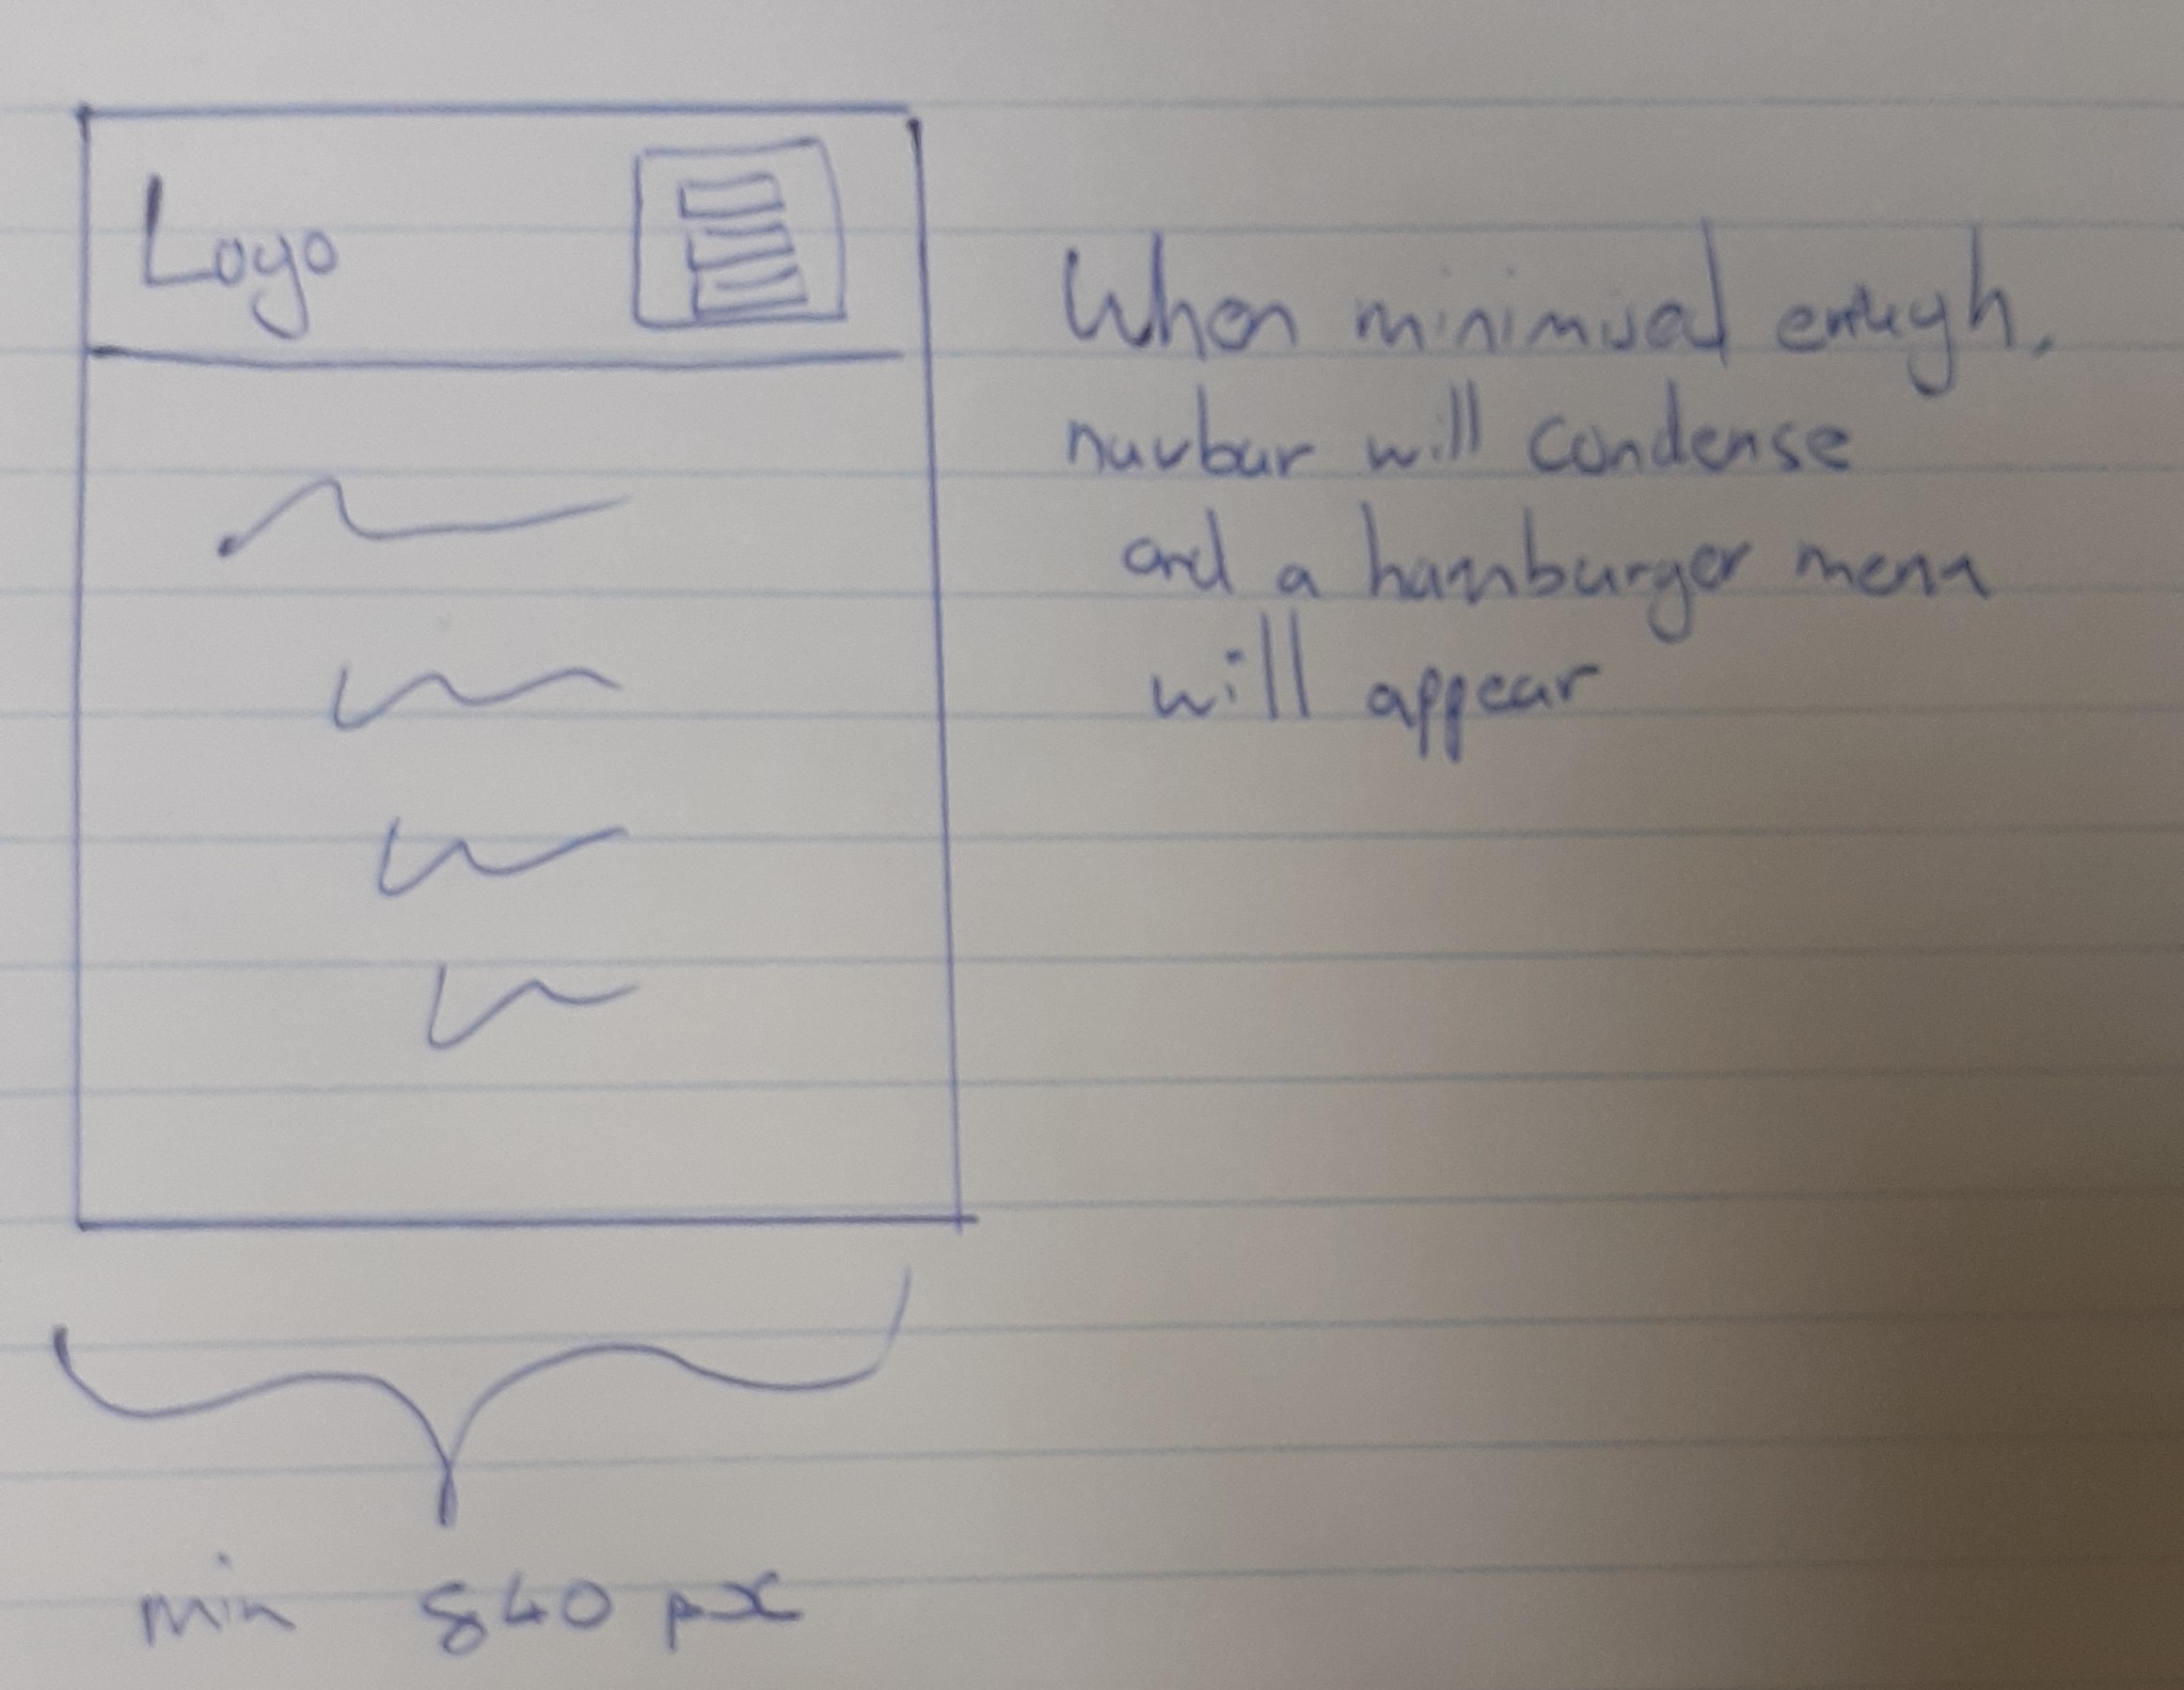 Logo
When minimised enough,
navbar will condense
and a hamburger menu
will appear
min 840 px